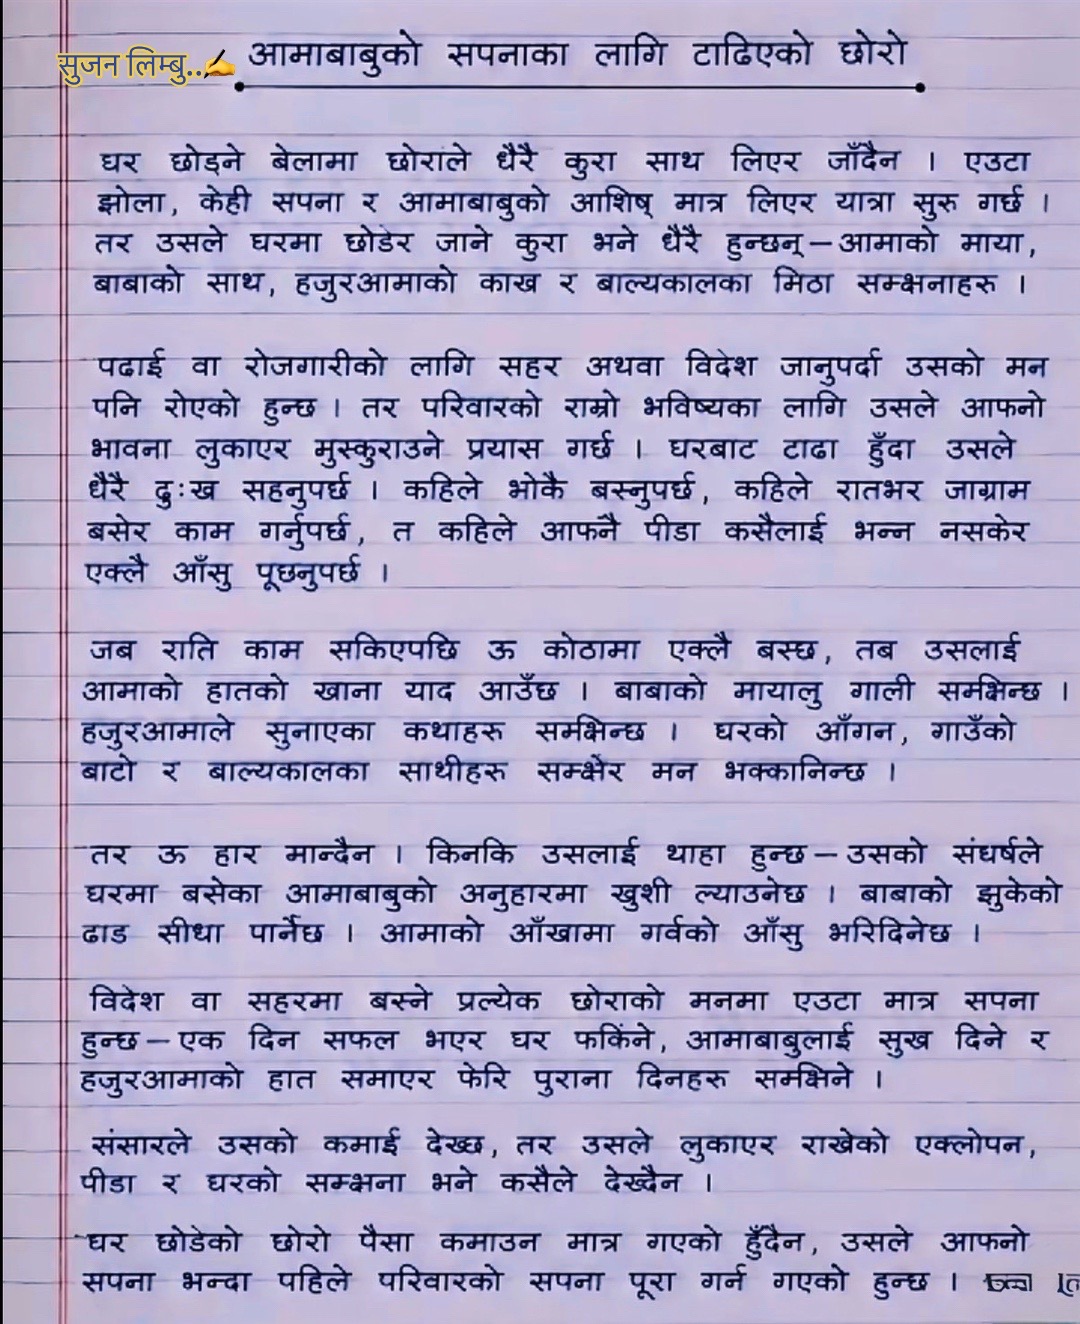 सुजन लिम्बु..✍️ आमाबाबुको सपनाका लागि टाढिएको छोरो
घर छोड्ने बेलामा छोराले धेरै कुरा साथ लिएर जाँदैन । एउटा
झोला, केही सपना र आमाबाबुको आशिष् मात्र लिएर यात्रा सुरु गर्छ ।
तर उसले घरमा छोडेर जाने कुरा भने धेरै हुन्छन् – आमाको माया,
बाबाको साथ, हजुरआमाको काख र बाल्यकालका मिठा सम्झनाहरू ।
पढाई वा रोजगारीको लागि सहर अथवा विदेश जानुपर्दा उसको मन
पनि रोएको हुन्छ । तर परिवारको राम्रो भविष्यका लागि उसले आफनो
भावना लुकाएर मुस्कुराउने प्रयास गर्छ । घरबाट टाढा हुँदा उसले
धेरै दुःख सहनुपर्छ । कहिले भोकै बस्नुपर्छ, कहिले रातभर जाग्राम
बसेर काम गर्नुपर्छ, त कहिले आफनै पीडा कसैलाई भन्न नसकेर
एक्लै आँसु पूछनुपर्छ ।
जब राति काम सकिएपछि ऊ कोठामा एक्लै बस्छ, तब उसलाई
आमाको हातको खाना याद आउँछ । बाबाको मायालु गाली सम्झिन्छ ।
हजुरआमाले सुनाएका कथाहरू सम्झिन्छ । घरको आँगन, गाउँको
बाटो र बाल्यकालका साथीहरू सम्झेर मन भक्कानिन्छ ।
तर ऊ हार मान्दैन । किनकि उसलाई थाहा हुन्छ – उसको संघर्षले
घरमा बसेका आमाबाबुको अनुहारमा खुशी ल्याउनेछ । बाबाको झुकेको
ढाड सीधा पार्नेछ । आमाको आँखामा गर्वको आँसु भरिदिनेछ ।
विदेश वा सहरमा बस्ने प्रत्येक छोराको मनमा एउटा मात्र सपना
हुन्छ – एक दिन सफल भएर घर फर्किने, आमाबाबुलाई सुख दिने र
हजुरआमाको हात समाएर फेरि पुराना दिनहरू सम्झिने ।
संसारले उसको कमाई देख्छ, तर उसले लुकाएर राखेको एक्लोपन,
पीडा र घरको सम्झना भने कसैले देख्दैन ।
घर छोडेको छोरो पैसा कमाउन मात्र गएको हुँदैन, उसले आफनो
सपना भन्दा पहिले परिवारको सपना पूरा गर्न गएको हुन्छ ।